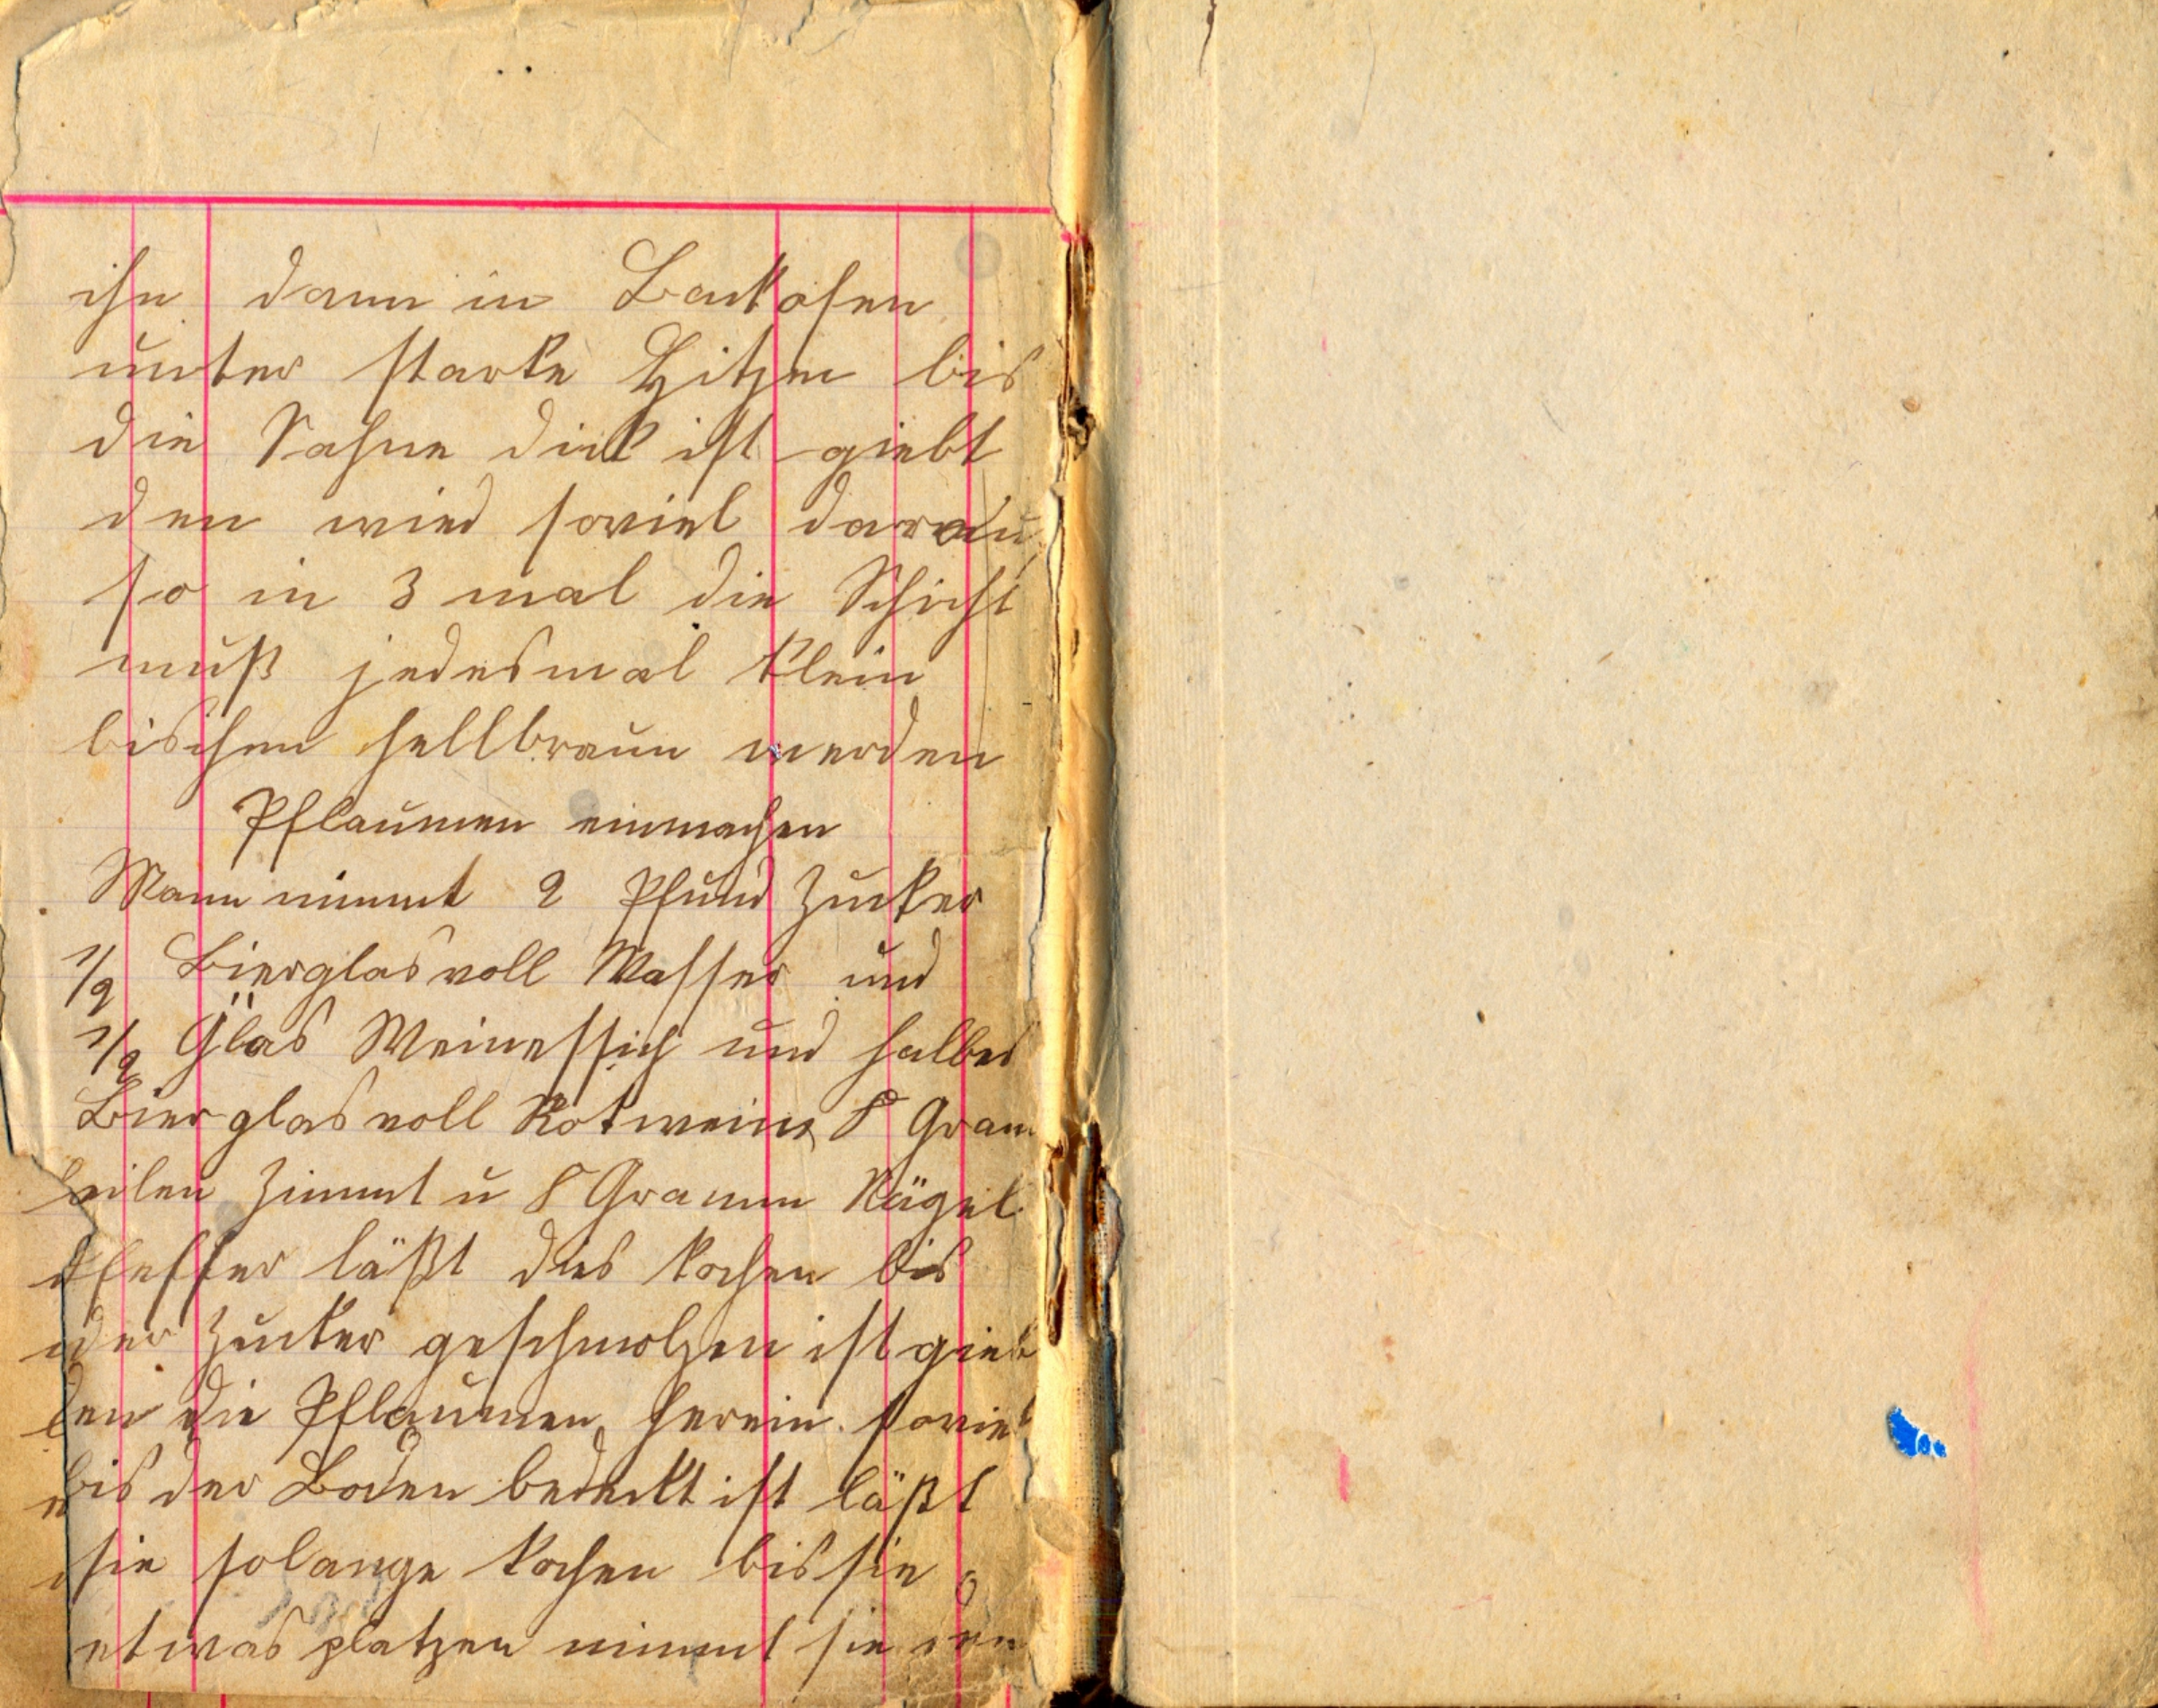 ihn dann in Backofen
unter starke Hitzen bis
die Sahne dick ist giebt
den wied soviel darau
so in 3 mal die Schicht
muß jedesmal klein
bischen hellbraun werden
Pflaumen einmachen
Mann nimmt 2 Pfund Zucker
1/2 Bierglas voll Wasser und
1/2 Glas Weinessich und halbes
Bierglas voll Rotwein 8 Gram
Zimmt u 8 Gramm Nägel
Pfeffer läßt das kochen bis
der Zucker geschmolzen ist gieb
den die Pflaumen herein soviel
bis der Boden bedeckt ist läßt
sie solange kochen bis sie
etwas platzen nimmt sie den